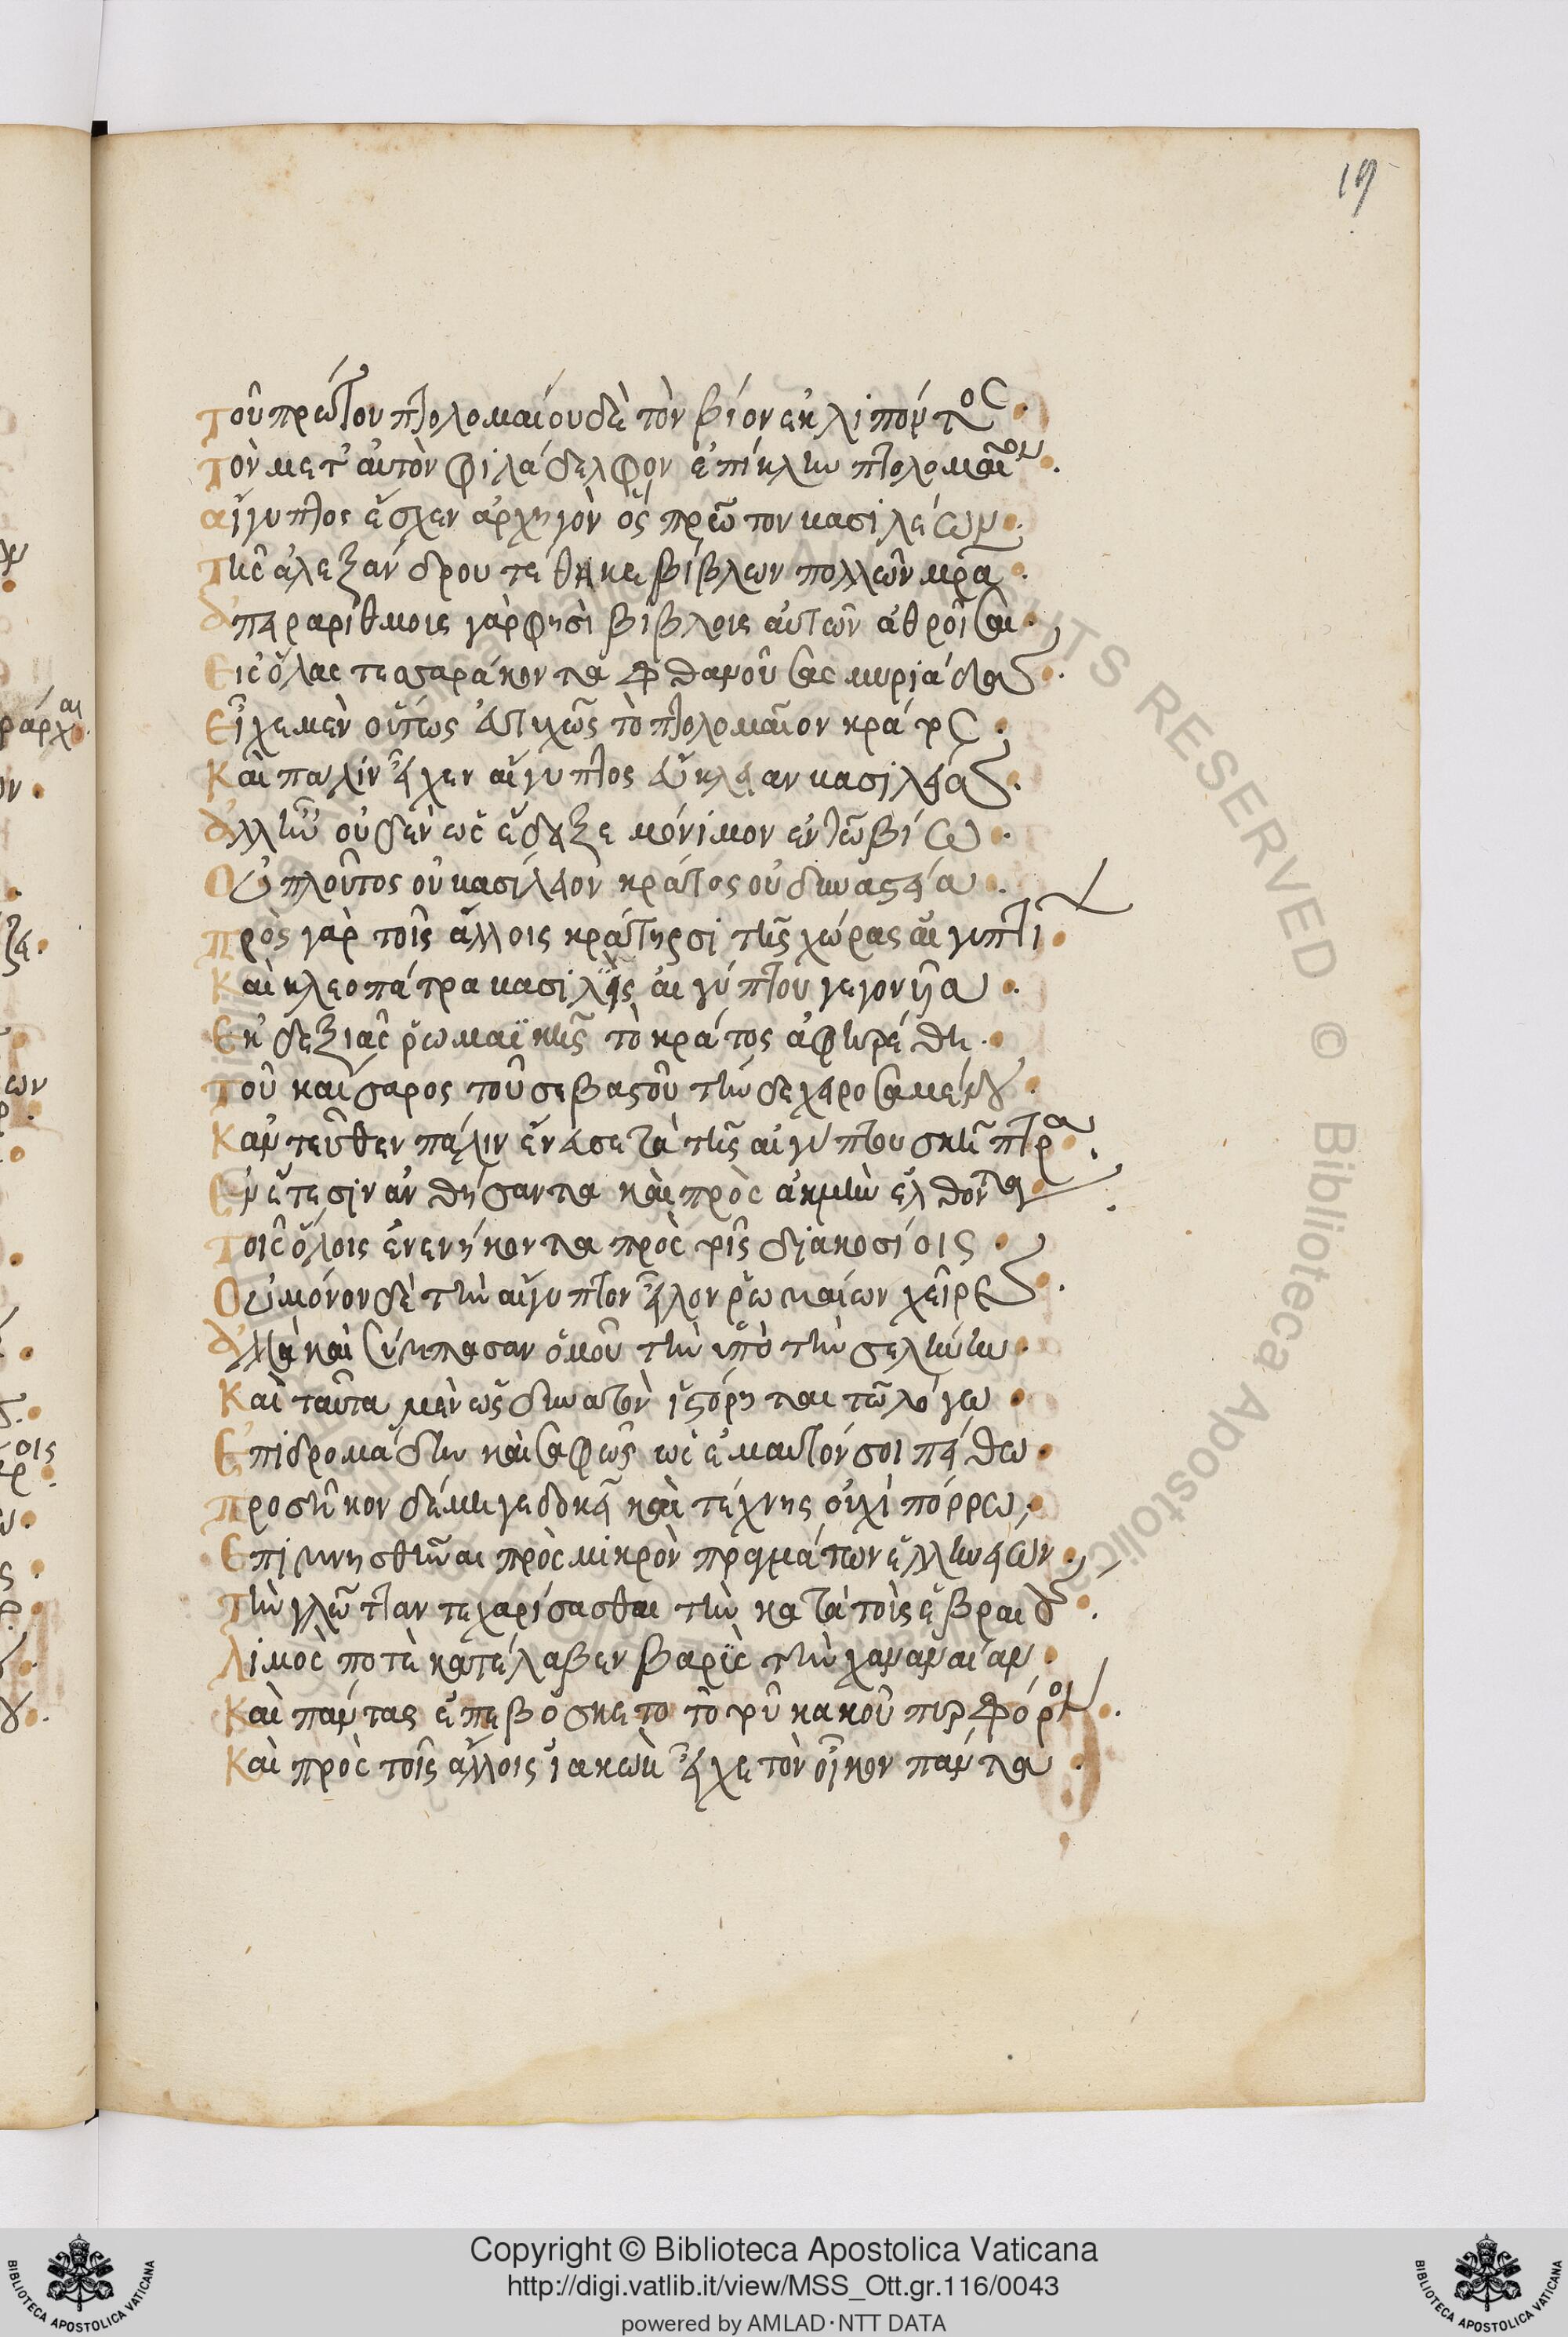 19
Τοῦ πρώτου πτολομαίου δὲ τὸν βίον εκλιπόντος.
Τὸν μετ' αὐτὸν φιλάδελφον ἐπίκλην πτολομαῖον.
αἴγυπτος ἔσχεν ἀρχηγὸν ὃς πρῶτον βασιλέων.
Τῆς ἀλεξάνδρου τέθηκε βίβλων πολλῶν
ἀπειραρίθμοις γὰρ φησὶ βίβλοις αὐτῶν ἀθροῖσαι.
Εἰς ὅλας τεσσαράκοντα φθανούσας μυριάδας.
Εἶχε μὲν οὕτως εὐτυχῶς τὸ πτολομαῖον κράτος.
Καὶ πάλιν εἶχεν αἴγυπτος εὔκλειαν βασιλείας.
ἀλλ' ἦν οὐδὲν ὡς ἔδειξε μόνιμον ἐν τῶ βίω.
Οὐ πλοῦτος οὐ βασίλειον κράτος οὐ δυναστεία.
πρὸς γὰρ τοῖς ἄλλοις κράτηρσι τῆς χώρας αἰγυπτί
Καὶ κλεοπάτρα βασιλὶς αἰγύπτου γεγονυῖα.
Ἐκ δεξιᾶς ῥωμαϊκῆς τὸ κράτος ἀφηρέθη.
Τοῦ καίσαρος τοῦ σεβαστοῦ τήνδε χειρωσαμένου.
Καντεῦθεν πάλιν ἔνευσε τὰ τῆς αἰγύπτου σκῆπτρα.
Ἐν ἔτεσιν ἀνθήσαντα καὶ πρὸς ἀκμὴν ἐλθόντα.
Τοῖς ὅλοις ἐνενήκοντα πρὸς τρὶς διακοσίοις.
Οὐ μόνον δὲ τὴν αἴγυπτον εἷλον ῥωμαίων χεῖρες.
ἀλλὰ καὶ σύμπασαν ὁμοῦ τὴν ὑπὸ τὴν σελήνην.
Καὶ ταῦτα μὲν ὡς δυνατὸν ἱστόρηται τῶ λόγω.
Ἐπιδρομάδην καὶ σαφῶς ὡς ἐμαυτόν σοι πείθω.
προσῆκον δέ με γε δοκεῖ καὶ τέχνης οὐχὶ πόρρω,
Ἐπιμνησθῆναι πρὸς μικρὸν πραγμάτων
Τὴν γλῶτταν τε χαρίσασθαι τὴν κατὰ τοῖς ἑβραίοις.
Λιμὸς ποτὲ κατέλαβεν βαρὺς τὴν χαναναίαν.
Καὶ πάντας ἐπεβόσκετο τὸ τοῦ κακοῦ πυρφόρον.
Καὶ πρὸς τοῖς ἄλλοις ἰακὼβ εἶχε τὸν οἶκον πάντα.
Copyright © Biblioteca Apostolica Vaticana
http://digi.vatlib.it/view/MSS_Ott.gr.116/0043
powered by AMLAD·NTT DATA
BIBLIOTECA APOSTOLICA VATICANA
BIBLIOTECA APOSTOLICA VATICANA